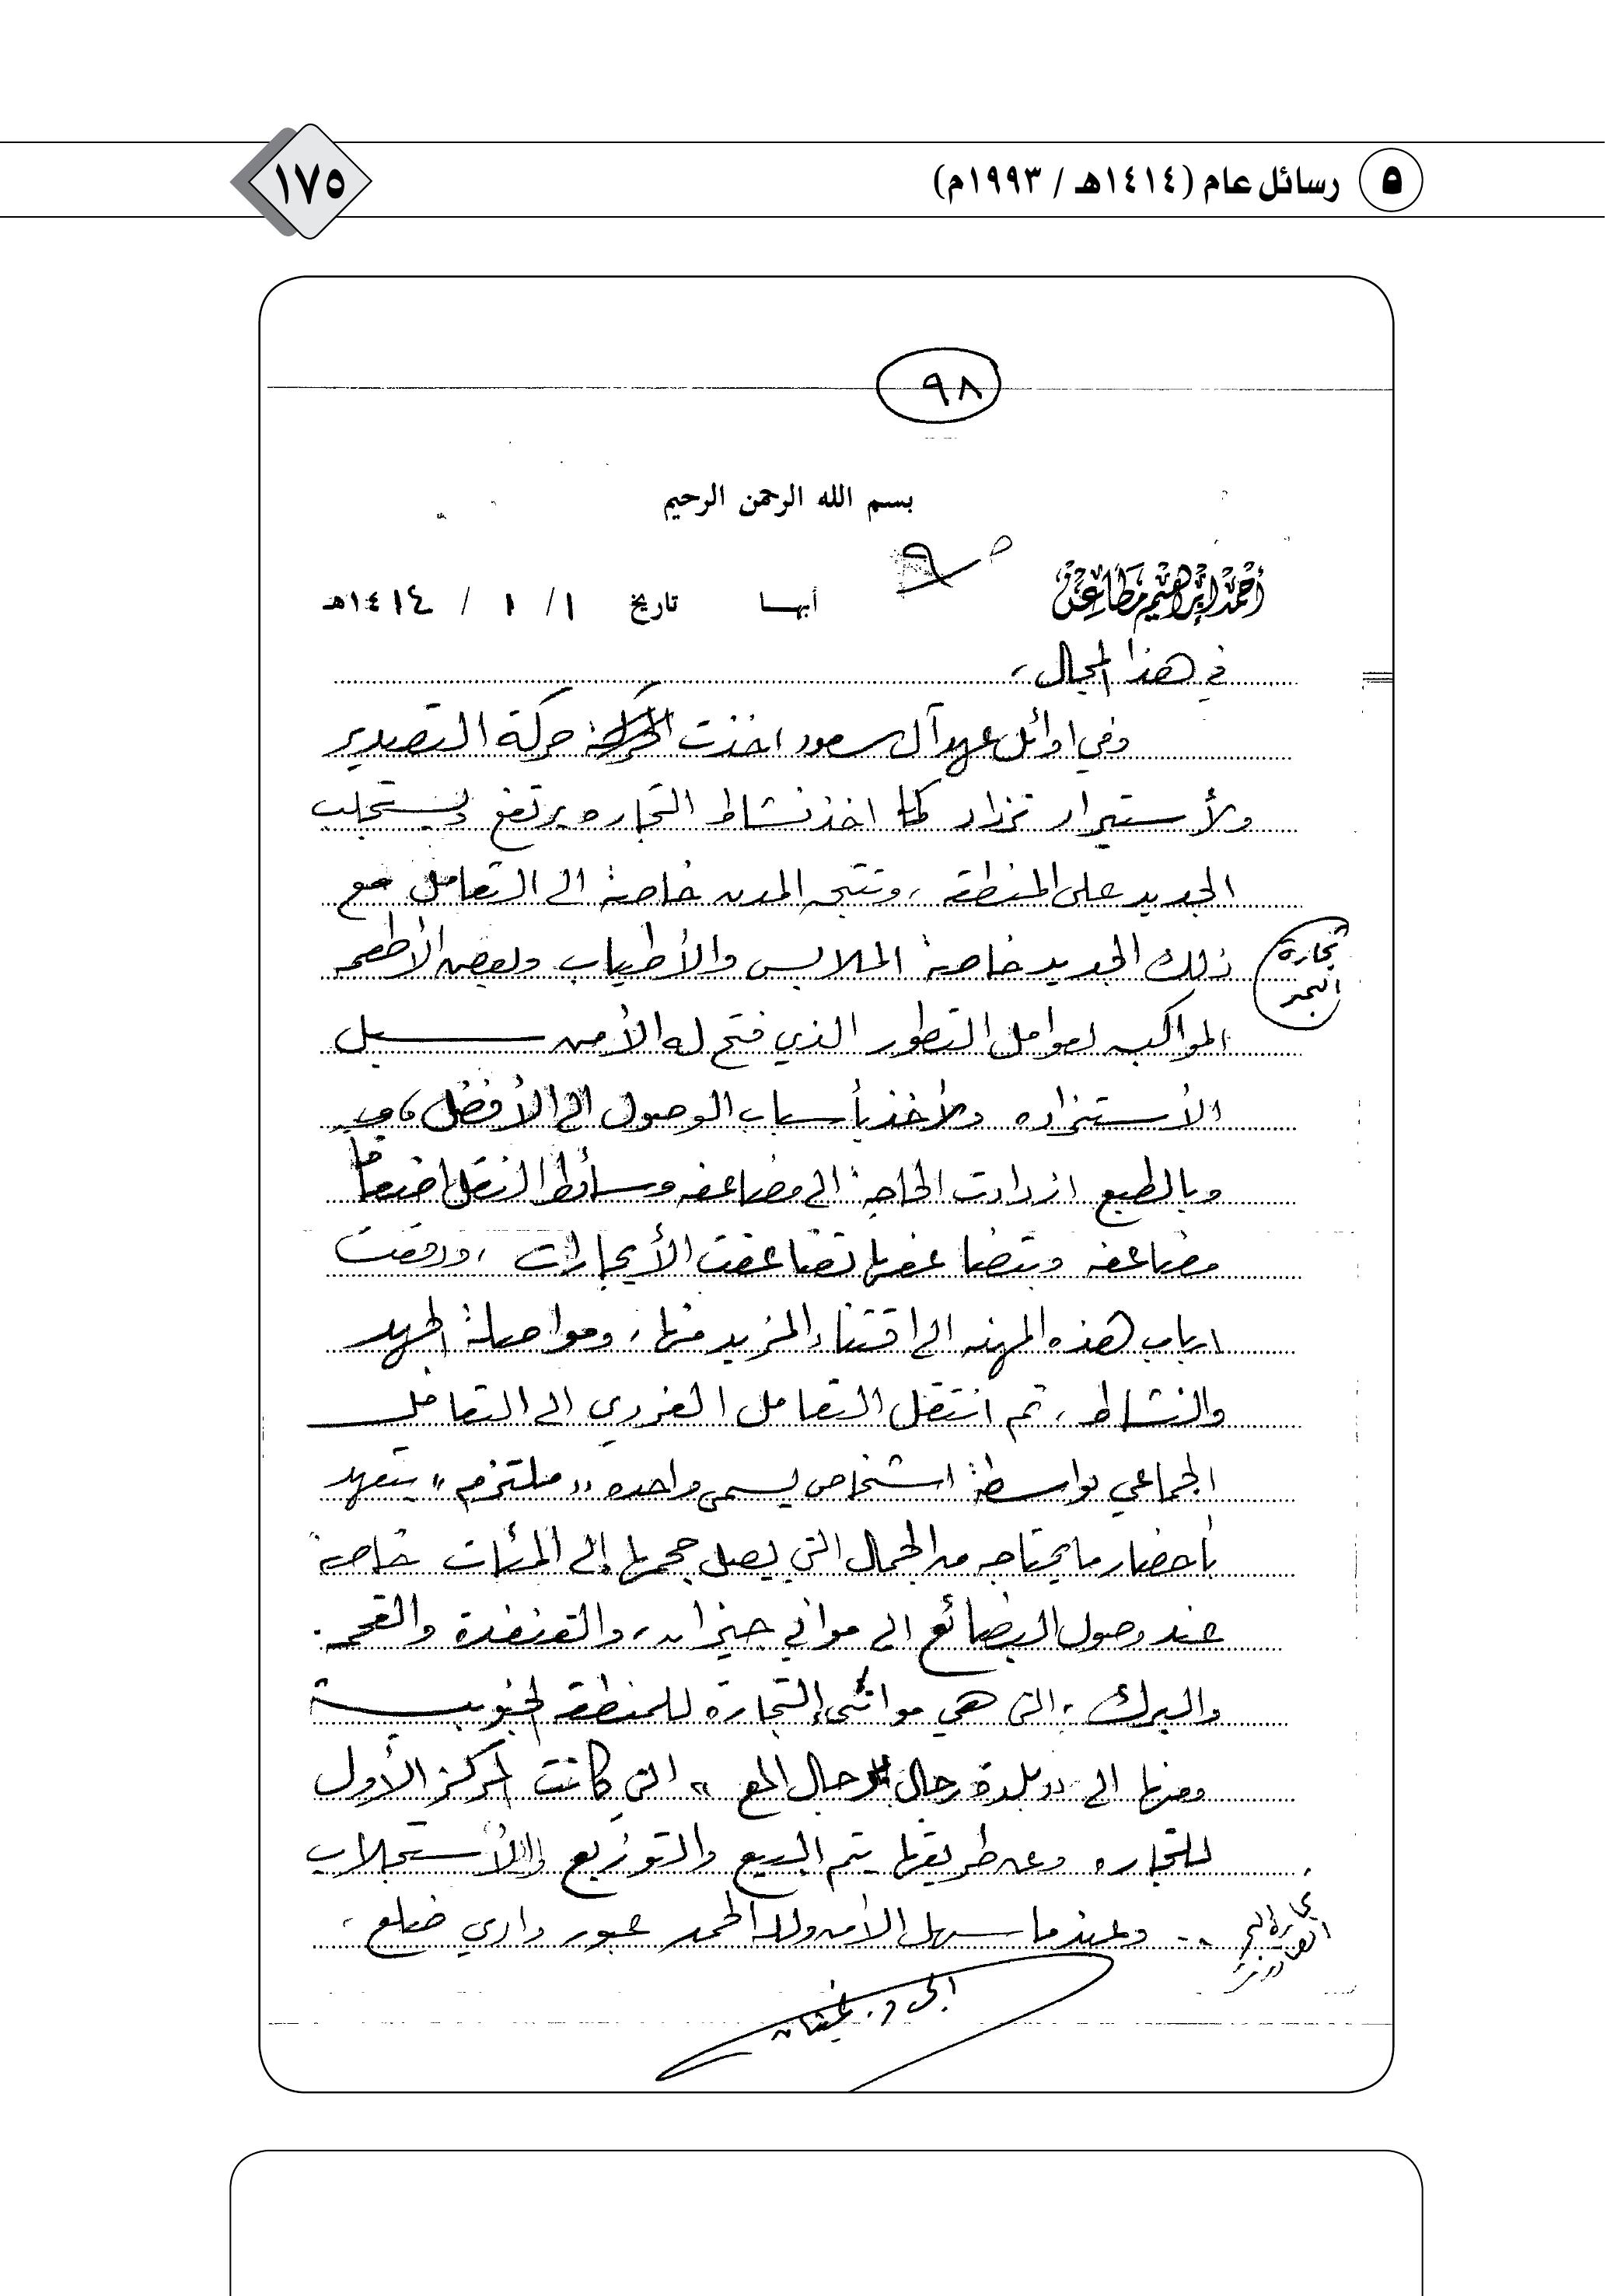 ٥ رسائل عام (١٤١٤هـ / ١٩٩٣م)
١٧٥
٩٨
بسم الله الرحمن الرحيم
أحمد إبراهيم مطاعن
أبها تاريخ ١ / ١ / ١٤١٤هـ
في هذا المجال ،
وفي اوائل عهد آل سعود اخذت حركة التصدير
ولأستيراد تزداد كما اخذ نشاط التجاره يرتفع ويستجلب
الجديد على المنطقه ، وتتجه المدن خاصة الى التعامل مع
تجارة
البحر
ذلك الجديد خاصة الملابس والأطياب وبعض الأطعمه
المواكبه لعوامل التطور الذي فتح له الأمن سبيل
الأستزاده ولأخذ بأسباب الوصول الى الأفضل
وبالطبع ازدادت الحاجة الى مضاعفه وسائط النقل اضعافا
مضاعفه وبتضاعفها تضاعفت الأيجارات ، ودفعت
ارباب هذه المهنه الى اقتناء المزيد منها ، ومواصلة الجهد
والنشاط ، ثم انتقل التعامل الفردي الى التعامل
الجماعي بواسطة اشخاص يسمى واحده " ملتزم " يتعهد
بأحضار ما يحتاجه من الجمال التي يصل حجمها إلى المئات خاصة
عند وصول البضائع الى مواني جيزان ، والقنفذة والقحمه .
والبرك ، التي هي موانئ التجارة للمنطقه الجنوبية
ومنها الى " بلدة رجال المع " التي كانت المركز الأول
للتجاره وعن طريقها يتم البيع والتوزيع والأستجلاب
.. وعندما سهل الأمن ولله الحمد عبور وادي ضلع ،
الى د. غيثان